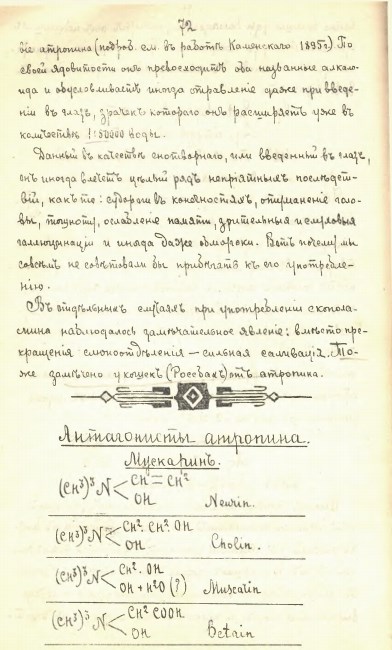 72
віе атропина (подроб. см. въ работѣ Каменскаго 1895г.) По
своей ядовитости онъ превосходитъ оба названные алкало-
ида и обусловливаетъ иногда отравленіе даже при введе-
ніи въ глазъ, зрачекъ котораго онъ расширяетъ уже въ
количествѣ 1:50000 воды.
Данный въ качествѣ снотворнаго, или введенный въ глазъ,
онъ иногда влечетъ цѣлый рядъ непріятныхъ послѣдст-
вій, какъ то: судороги въ конечностяхъ, отуманеніе голо-
вы, тошноту, ослабленіе памяти, зрительныя и слуховыя
галлюцинаціи и иногда даже обмороки. Вотъ почему мы
совсѣмъ не совѣтовали бы прибѣгать къ его употребле-
нію.
Въ отдѣльныхъ случаяхъ при употребленіи скопола-
мина наблюдалось замѣчательное явленіе: вмѣсто пре-
кращенія слюноотдѣленія — сильная саливація. То-
же замѣчено у кошекъ (Россбахъ) отъ атропина.
Антагонисты атропина.
Мускаринъ.
(CH³)³N < CH = CH²
OH Neurin.
(CH³)³N < CH². CH². OH
OH Cholin.
(CH³)³N < CH². OH
OH + H²O (?) Muscarin
(CH³)³N < CH² COOH
OH Betain